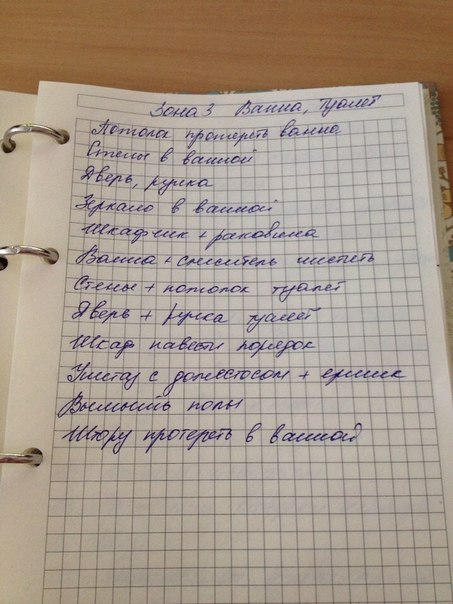 Зона 3 Ванна, туалет
Потолок протереть ванна
Стены в ванной
Дверь, ручка
Зеркало в ванной
Шкафчик + раковина
Ванна + смеситель чистить
Стены + потолок туалет
Дверь + ручка туалет
Шкаф навести порядок
Унитаз с доместосом + ершик
Вымыть полы
Штору протереть в ванной